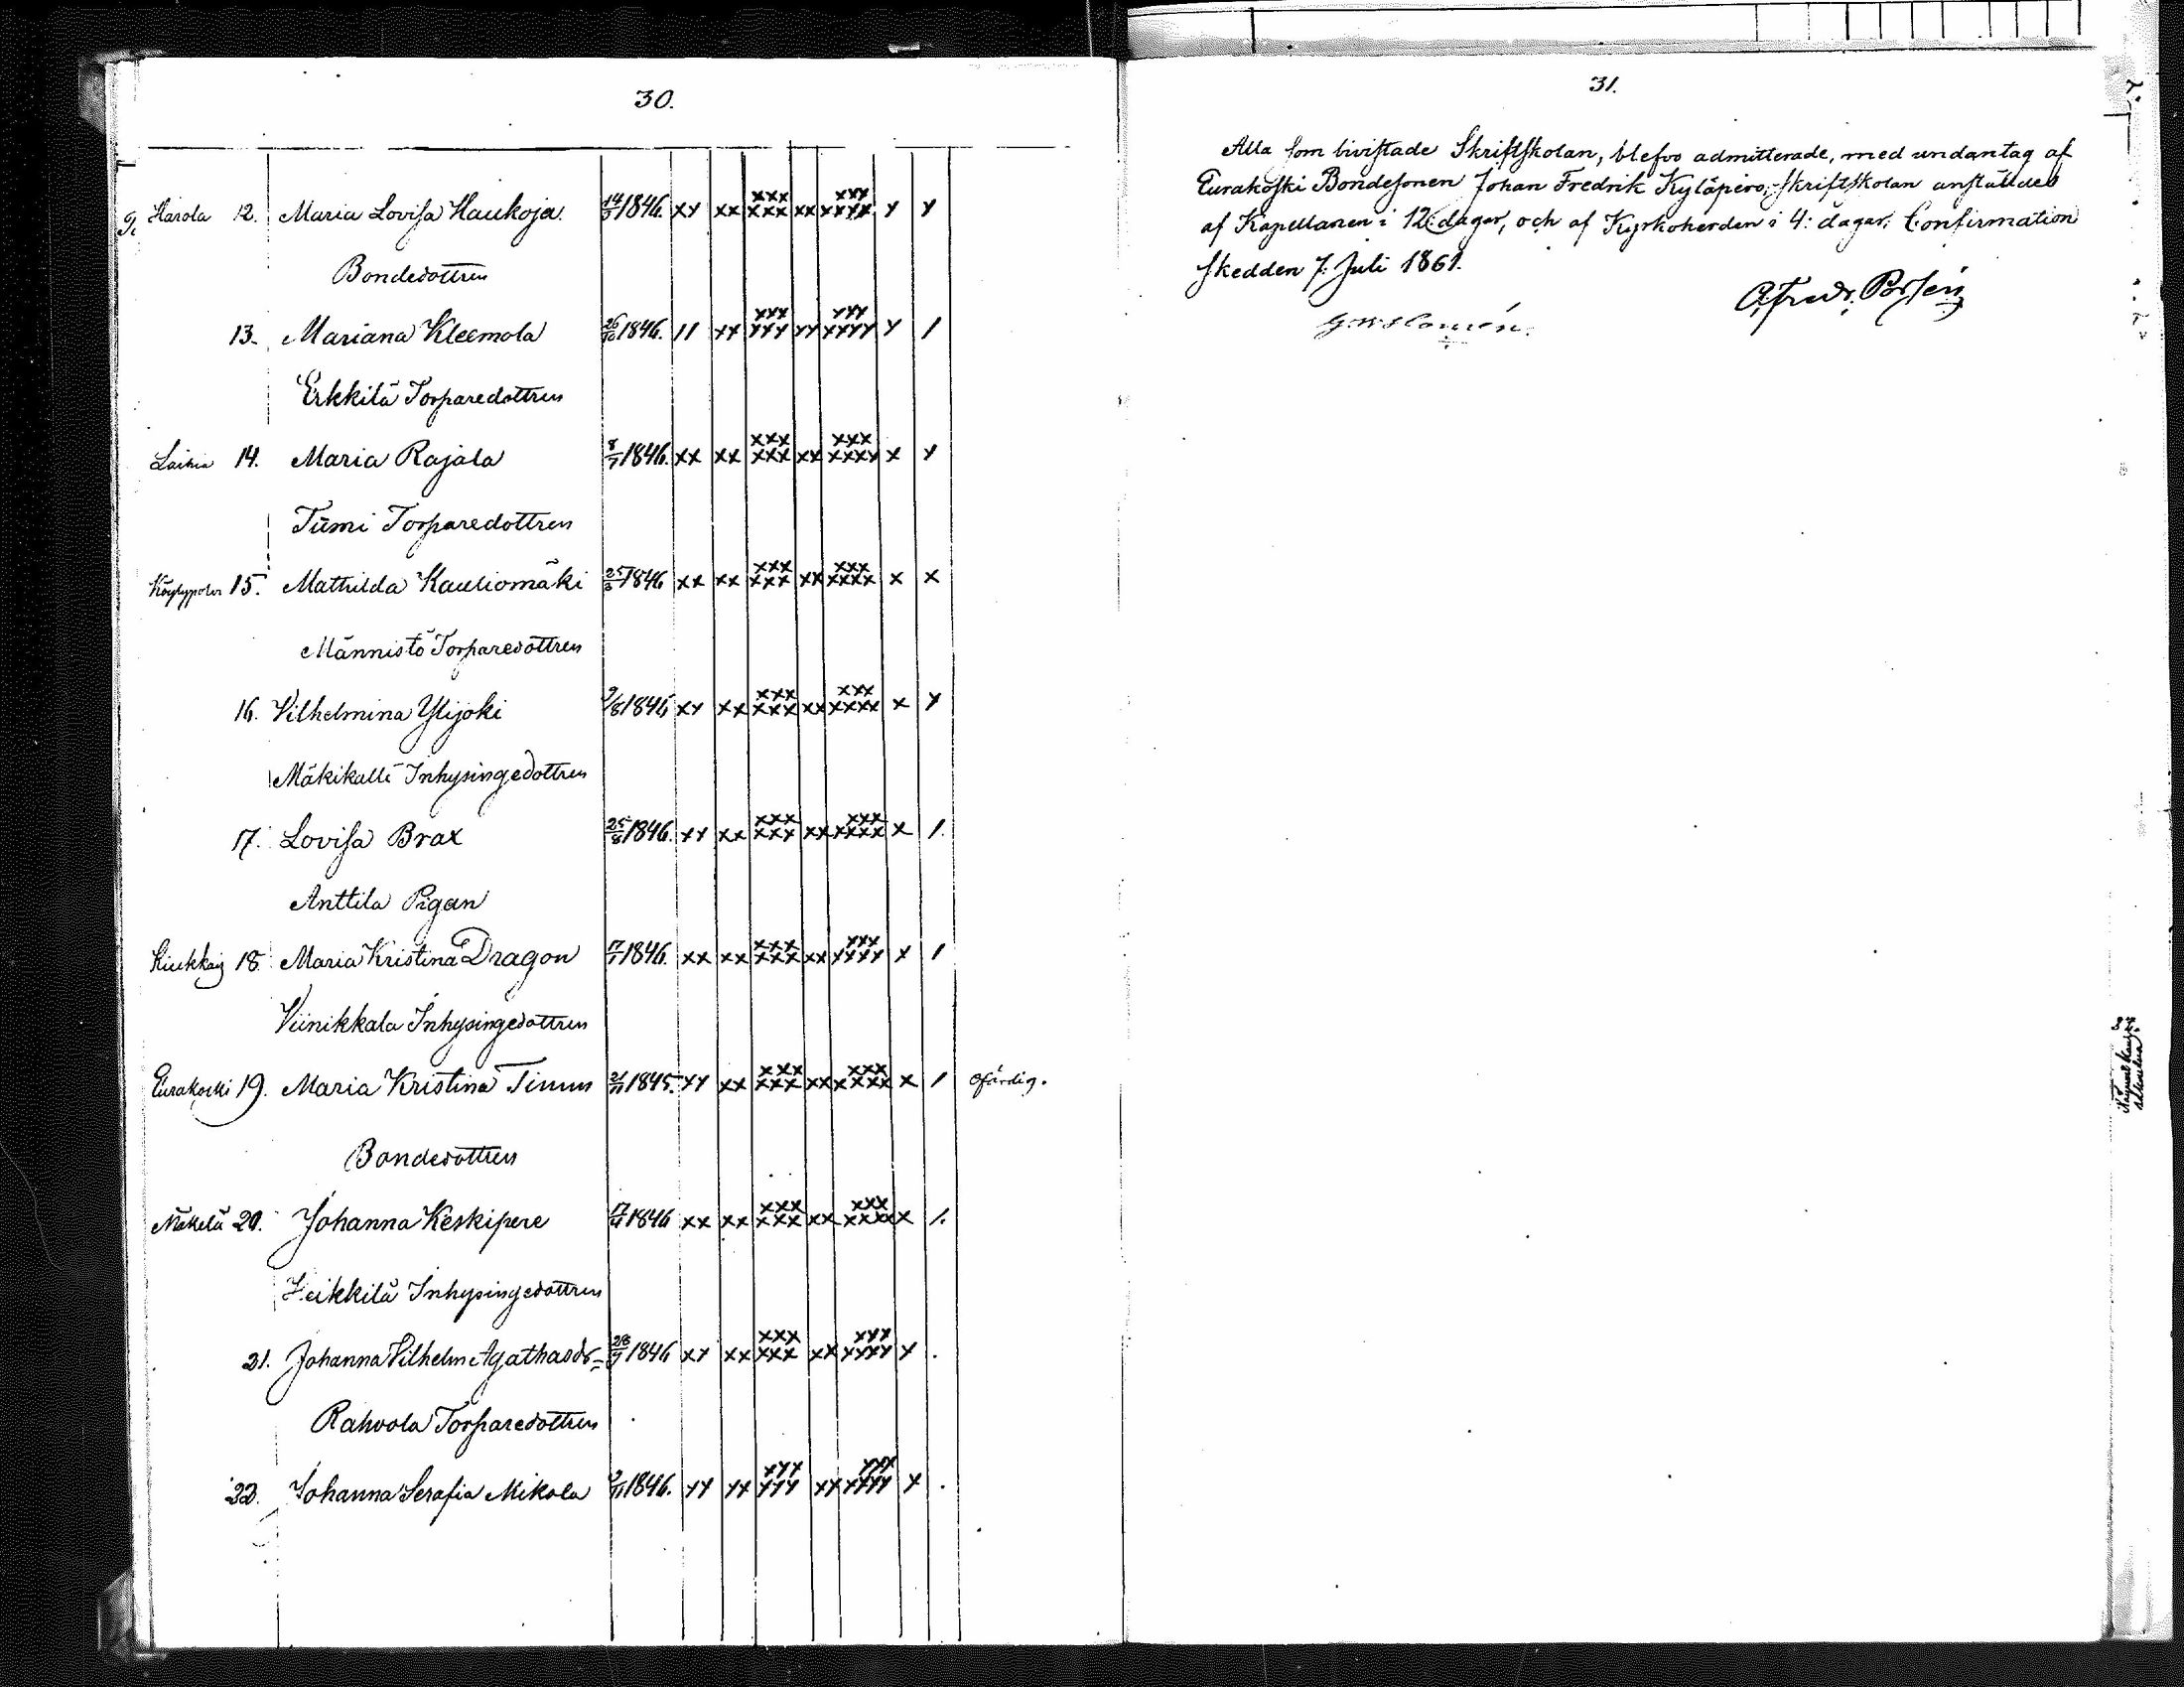 30.
Harola 12. Maria Lovisa Haukoja. 14/5 1846. xx xx xxx xxx xx xxx xxxx x x
Bondedottren
13. Mariana Kleemola 26/10 1846. 11 xx xxx xxx xx xxx xxxx x /
Erkkilä Torparedottren
Laihia 14. Maria Rajala 8/7 1846. xx xx xxx xxx xx xxx xxxx x x
Tumi Torparedottren
15. Mathilda Kauliomäki 1846 xx xx xxx xxx xx xxx xxxx x x
Männistö Torparedottren
16. Vilhelmina Ylijoki 9/8 1846 xx xx xxx xxx xx xxx xxxx x x
Mäkikalli Inhysingedottren
17. Lovisa Brax 25/8 1846. xx xx xxx xxx xx xxx xxxx x /.
Anttila Pigan
18. Maria Kristina Dragon 17/1 1846. xx xx xxx xxx xx xxx xxxx x /
Viinikkala Inhysingedottren
Eurakoski 19. Maria Kristina Timus 21/11 1845. xx xx xxx xxx xx xxx xxxx x / Ofärdig.
Bondedottren
20. Johanna Keskipere 17/4 1846 xx xx xxx xxx xx xxx xxxx x /.
Heikkilä Inhysingedottren
21. Johanna Vilhelm. Agathasdr= 28/9 1846 xx xx xxx xxx xx xxx xxxx x .
Rahvola Torparedottren
22. Johanna Serafia Mikola 1846. xx xx xxx xxx xx xxx xxxx x .
31.
Alla som bivistade Skriftskolan, blefvo admitterade, med undantag af
Eurakoski Bondesonen Johan Fredrik Kyläpero, Skriftskolan anställdes
af Kapellanen i 12: dagar, och af Kyrkoherden i 4: dagar. Confirmation
skedde den 7: Juli 1861.